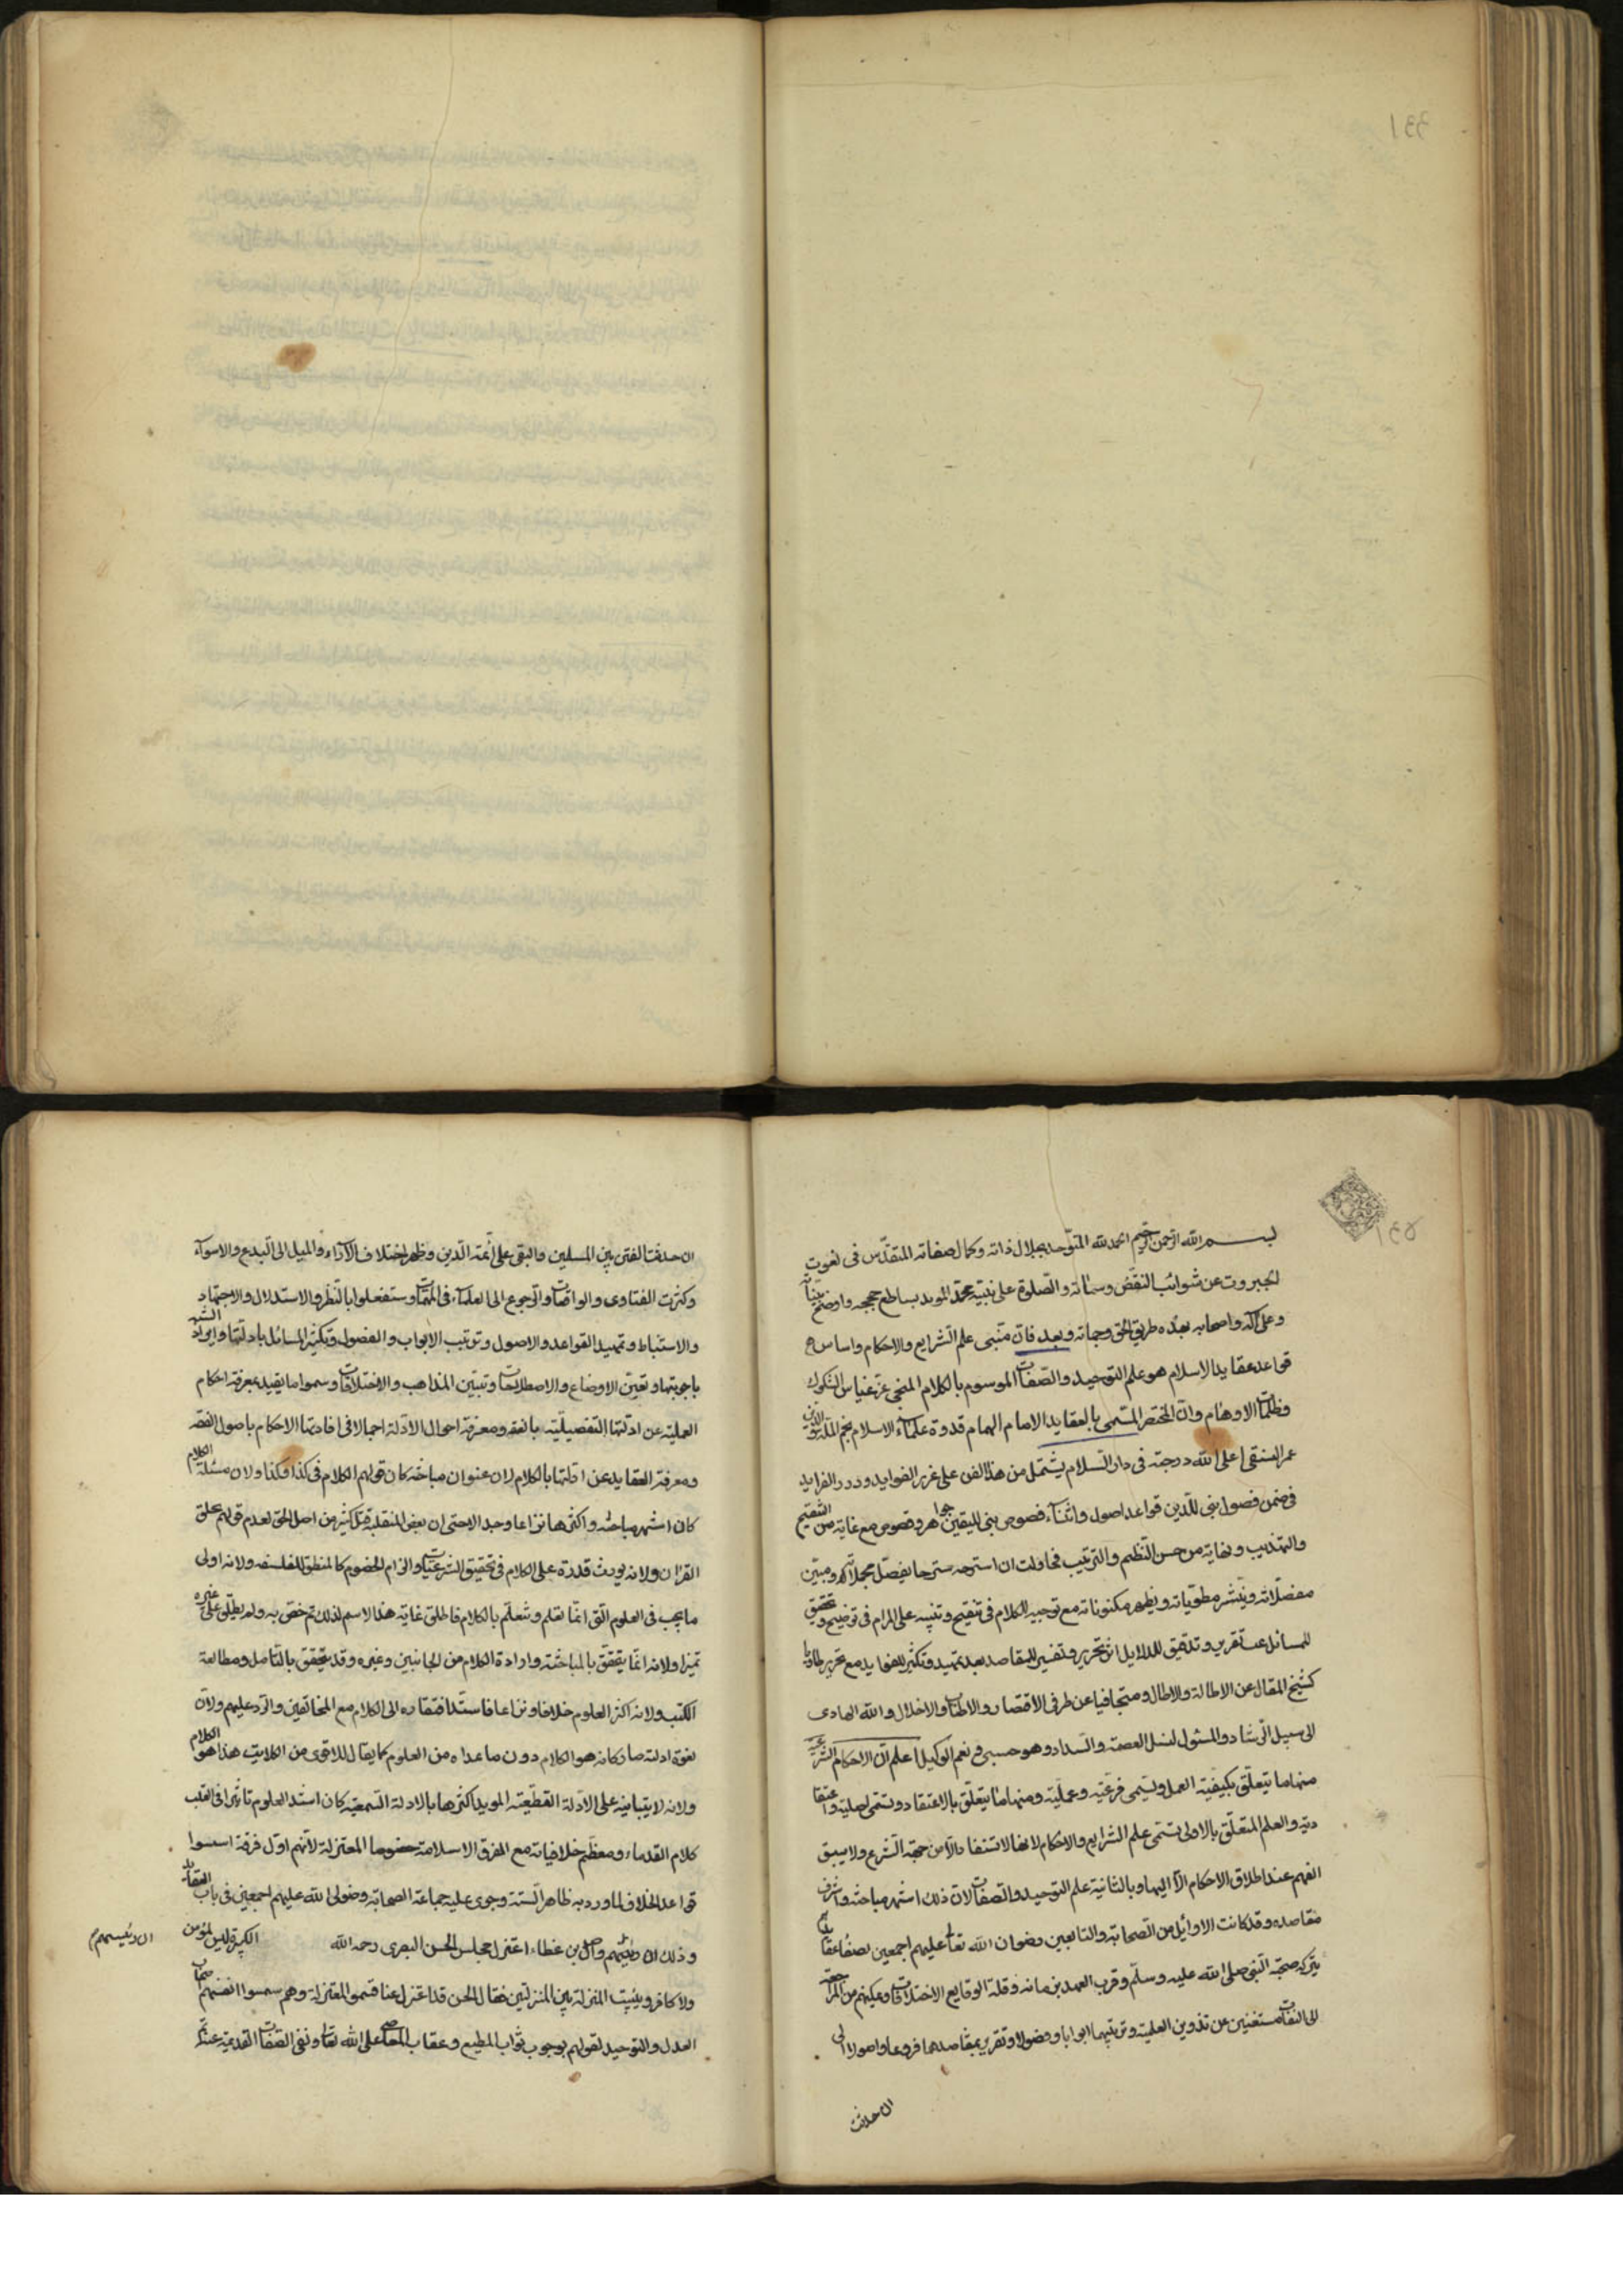 بسم الله الرحمن الرحيم الحمد لله المتوحد بجلال ذاته وكمال صفاته المتقدس فى نعوت
الجبروت عن شوائب النقص وسماته والصلوة على نبيه محمد المويد بساطع حججه وواضح بيناته
وعلى آله واصحابه هداه طريق الحق وحماته وبعد فان مبنى علم الشرايع والاحكام واساس
قواعد عقايد الاسلام هو علم التوحيد والصفات الموسوم بالكلام المنجى عن غياهب الشكوك
وظلمات الاوهام وان المختصر المسمى بالعقايد للامام الهمام قدوة علماء الاسلام نجم الملة والدين
عمر النسفى اعلى الله درجته فى دار السلام يشتمل من هذا الفن على غرر الفوايد ودرر الفرايد
فى ضمن فصول هى للدين قواعد اصول واثناء فصوص هى لليقين جواهر وفصوص مع غاية من التنقيح
والتهذيب ونهاية من حسن التنظيم والترتيب فحاولت ان اشرحه شرحا يفصل مجملاته ويبين
معضلاته وينشر مطوياته ويظهر مكنوناته مع توجيه للكلام فى تنقيح وتنبيه على المرام فى توضيح وتحقيق
للمسائل غب تقرير وتدقيق للدلايل اثر تحرير وتفسير للمقاصد بعد تمهيد وتكثير للفوايد مع تجريد طاويا
كشح المقال عن الاطالة والاملال ومتجافيا عن طرفى الاقتصار والاطناب والاخلال والله الهادى
الى سبيل الرشاد والمسئول لنيل العصمة والسداد وهو حسبى ونعم الوكيل اعلم ان الاحكام الشرعية
منها ما يتعلق بكيفية العمل وتسمى فرعية وعملية ومنها ما يتعلق بالاعتقاد وتسمى اصلية واعتقا
دية والعلم المتعلق بالاولى تسمى علم الشرايع والاحكام لانها لا تستفاد الا من جهة الشرع ولا يسبق
الفهم عند اطلاق الاحكام الا اليها وبالثانية علم التوحيد والصفات لان ذلك اشهر مباحثه واشرف
مقاصده وقد كانت الاوائل من الصحابة والتابعين رضوان الله تعالى عليهم اجمعين لصفاء عقايدهم
ببركة صحبة النبى صلى الله عليه وسلم وقرب العهد بزمانه وقلة الوقايع والاختلافات وتمكنهم من المراجعة
الى الثقات مستغنين عن تدوين العلمين وترتيبهما ابوابا وفصولا وتقرير مقاصدهما فروعا واصولا الى
ان حدثت
ان حدثت الفتن بين المسلمين والبغى على ائمة الدين وظهر اختلاف الآراء والميل الى البدع والاهوآء
وكثرت الفتاوى والواقعات والرجوع الى العلماء فى المهمات فاشتغلوا بالنظر والاستدلال والاجتهاد
والاستنباط وتمهيد القواعد والاصول وترتيب الابواب والفصول وتكثير المسائل بادلتها وايراد الشبه
باجوبتها وتعيين الاوضاع والاصطلاحات وتبيين المذاهب والاختلافات وسموا ما يفيد معرفة احكام
العملية عن ادلتها التفصيلية بالفقه ومعرفة احوال الادلة اجمالا فى افادتها الاحكام باصول الفقه
ومعرفة العقايد عن ادلتها بالكلام لان عنوان مباحثه كان قولهم الكلام فى كذا وكذا ولان مسئلة الكلام
كان اشهر مباحثه واكثرها نزاعا وجدالا حتى ان بعض المتغلبة قتل كثير من اهل الحق لعدم قولهم بخلق
القرآن ولانه يورث قدرة على الكلام فى تحقيق الشرعيات والزام الخصوم كالمنطق للفلسفه ولانه اولى
ما يجب فى العلوم التى انما تعلم وتتعلم بالكلام فاطلق غاية هذا الاسم لذلك ثم خص به ولم يطلق على غيره
تميزا ولانه انما يتحقق بالمباحثة وادارة الكلام من الجانبين وغيره وقد يتحقق بالتأمل ومطالعة
الكتب ولانه اكثر العلوم خلافا ونزاعا فاشتد افتقاره الى الكلام مع المخالفين والرد عليهم ولان
لقوة ادلته صار كانه هو الكلام دون ما عداه من العلوم كما يقال للاقوى من الكلامين هذا هو الكلام
ولانه لابتنايه على الادلة القطعية المويد اكثرها بالادلة السمعية كان اشد العلوم تاثيرا فى القلب
كلام القدماء ومعظم خلافياته مع الفرق الاسلامية خصوصا المعتزلة لانهم اول فرقة اسسوا
قواعد الخلاف لما ورد به ظاهر السنة وجرى عليه جماعة الصحابة رضوان الله عليهم اجمعين فى باب العقايد
وذلك ان رئيسهم واصل بن عطاء اعتزل مجلس الحسن البصرى رحمه الله الكبيرة ليس بمؤمن
ان رئيسهم
ولا كافر ويثبت المنزلة بين المنزلتين فقال الحسن قد اعتزل عنا فسموا المعتزلة وهم سموا انفسهم اصحاب
العدل والتوحيد لقولهم بوجوب ثواب المطيع وعقاب العاصى على الله تعالى ونفى الصفات القديمة عنه